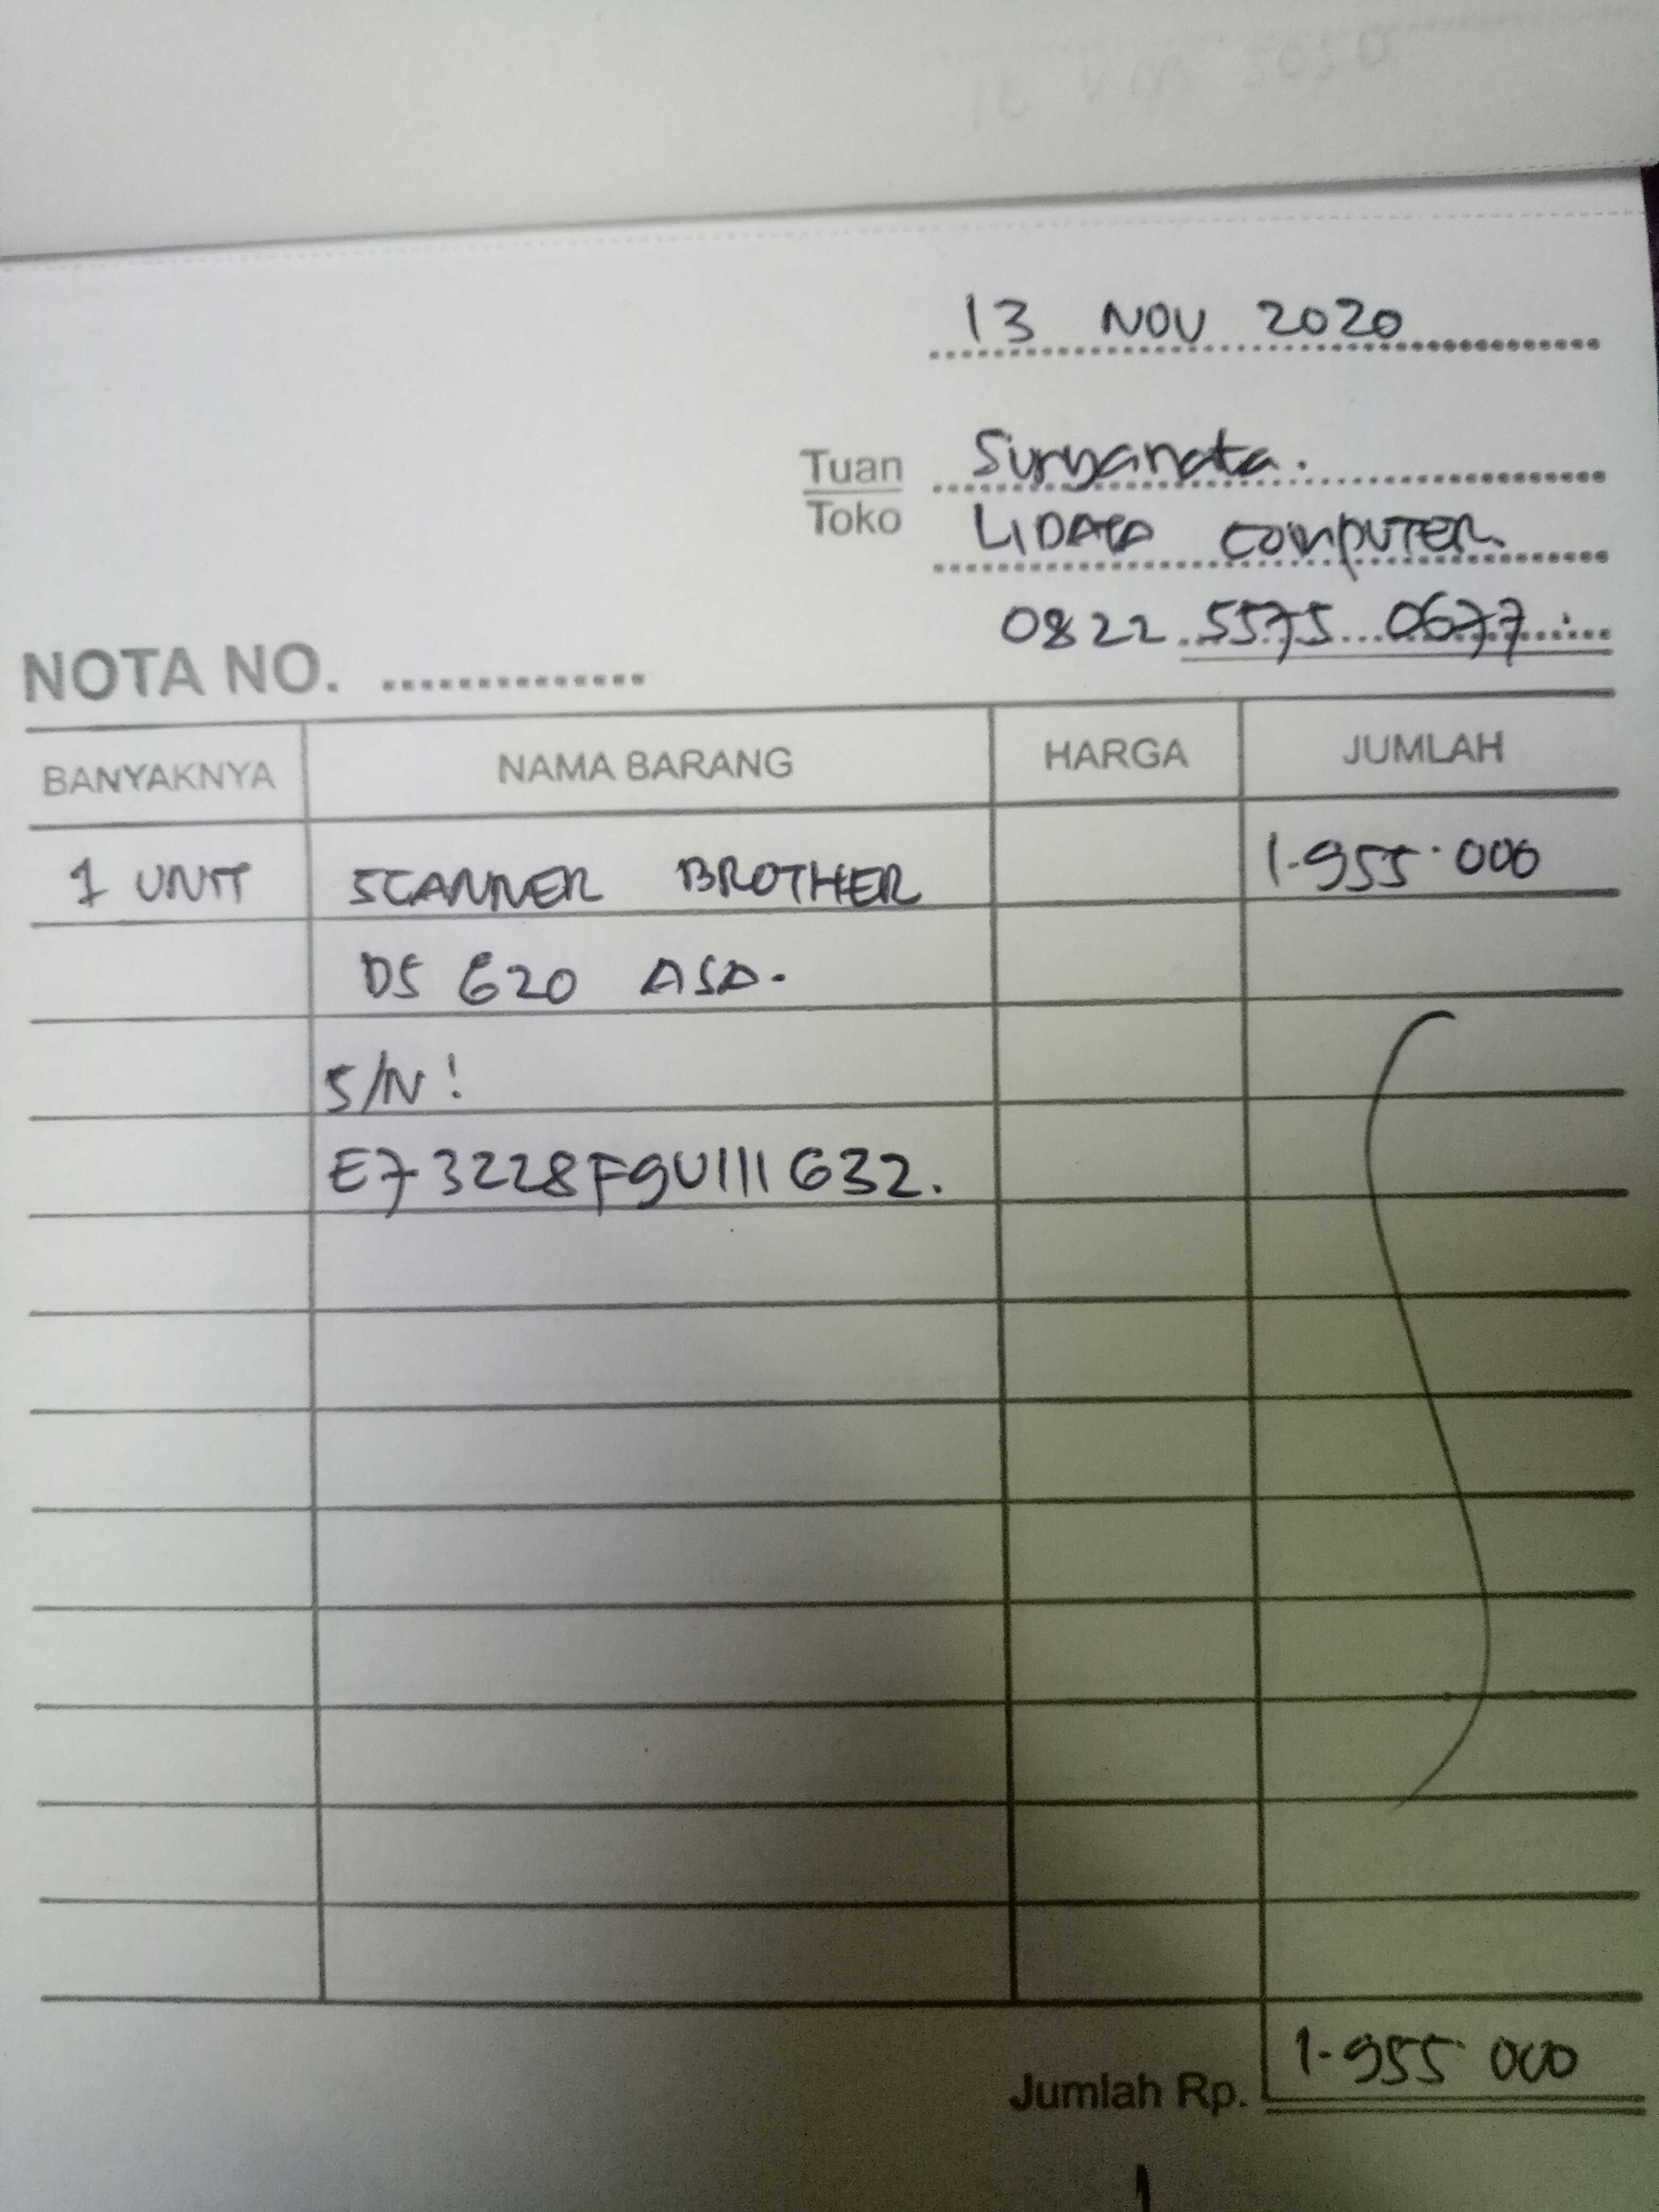 13 NOV 2020
Tuan Suryanata.
Toko LIDATA COMPUTER
0822 5575 0677
NOTA NO. ..............
BANYAKNYA NAMA BARANG HARGA JUMLAH
1 UNIT SCANNER BROTHER 1.955.000
DS 620 ASD.
S/N :
E73228F9U111632.
Jumlah Rp. 1.955 000